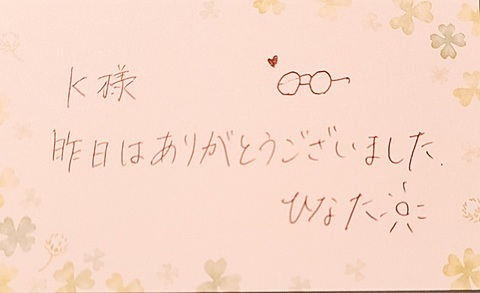 K様
昨日はありがとうございました.
ひなた